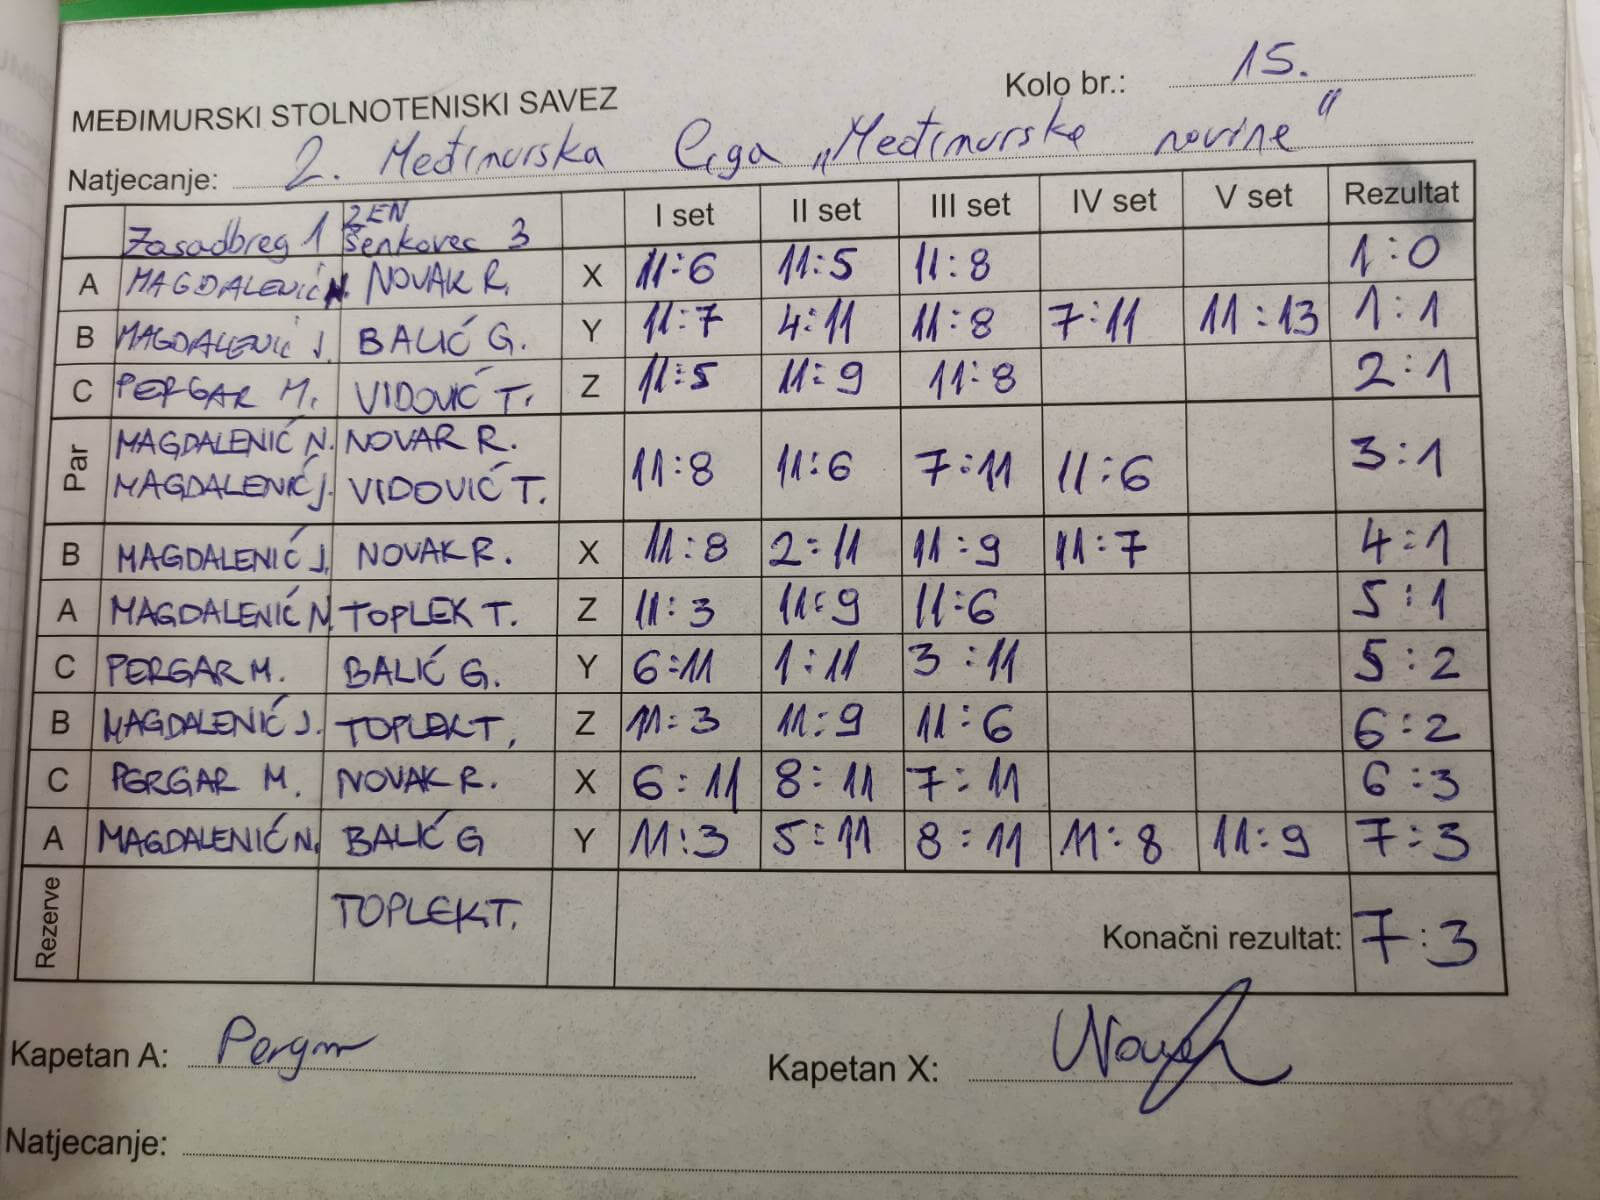 Kolo br.: 15.
MEĐIMURSKI STOLNOTENISKI SAVEZ
Natjecanje: 2. Međimurska liga „Međimurske novine"
Zasadbreg 1 ŽEN Šenkovec 3 I set II set III set IV set V set Rezultat
A MAGDALENIĆ N. NOVAK R. X 11:6 11:5 11:8 1:0
B MAGDALENIĆ J. BALIĆ G. Y 11:7 4:11 11:8 7:11 11:13 1:1
C PERGAR M. VIDOVIĆ T. Z 11:5 11:9 11:8 2:1
Par MAGDALENIĆ N. NOVAK R. 11:8 11:6 7:11 11:6 3:1
MAGDALENIĆ J. VIDOVIĆ T.
B MAGDALENIĆ J. NOVAK R. X 11:8 2:11 11:9 11:7 4:1
A MAGDALENIĆ N. TOPLEK T. Z 11:3 11:9 11:6 5:1
C PERGAR M. BALIĆ G. Y 6:11 1:11 3:11 5:2
B MAGDALENIĆ J. TOPLEK T. Z 11:3 11:9 11:6 6:2
C PERGAR M. NOVAK R. X 6:11 8:11 7:11 6:3
A MAGDALENIĆ N. BALIĆ G Y 11:3 5:11 8:11 11:8 11:9 7:3
Rezerve TOPLEK T. Konačni rezultat: 7:3
Kapetan A: Pergar Kapetan X: Novak
Natjecanje: